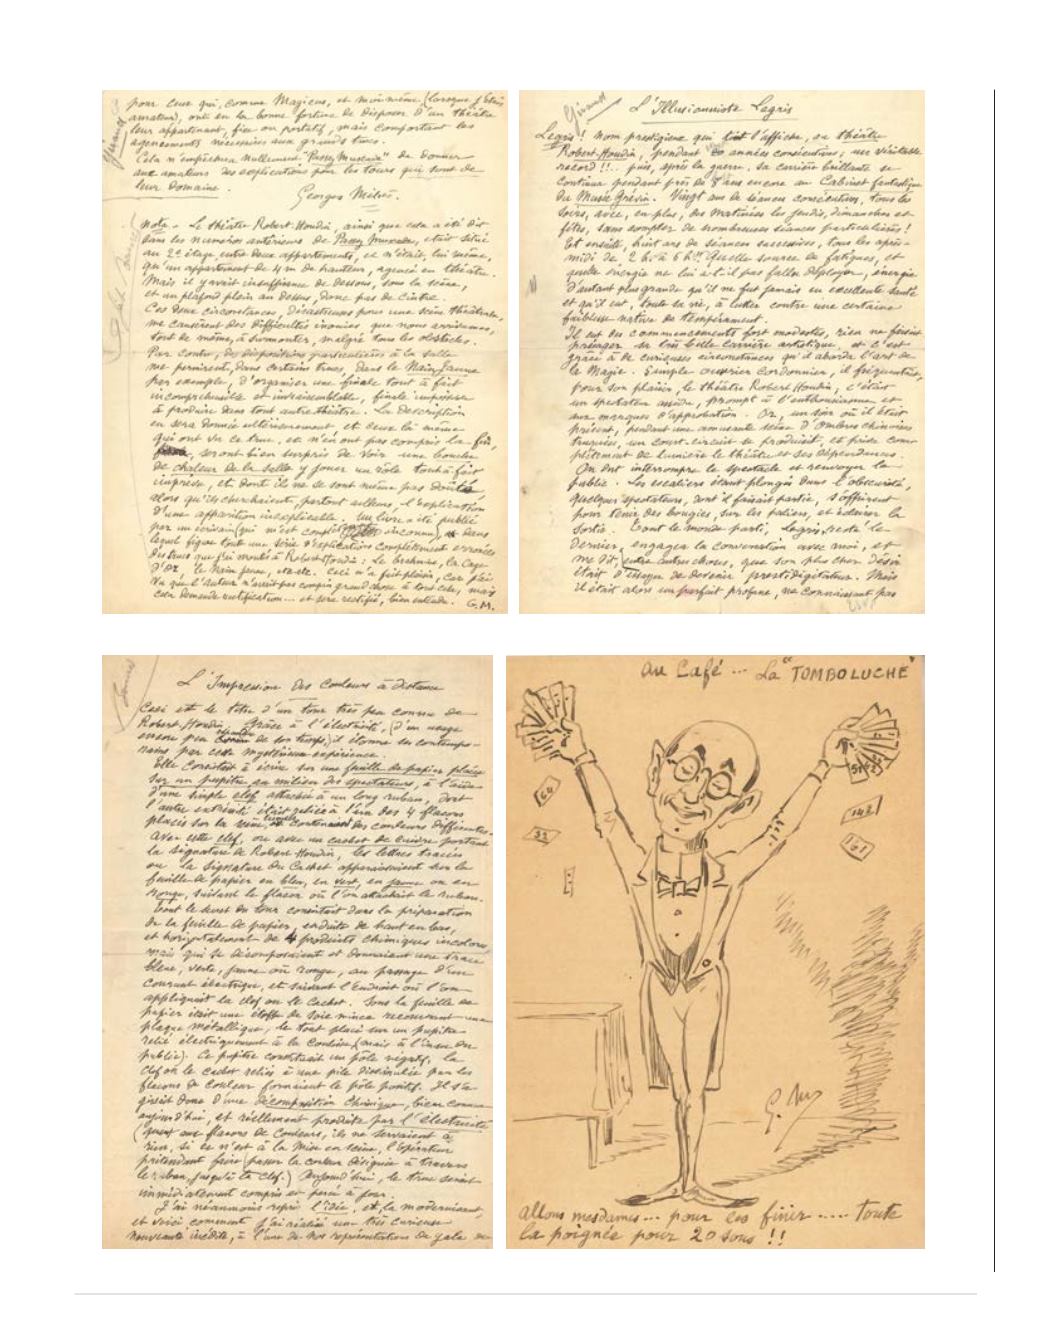 pour ceux qui, comme Magicus, et moi même (lorsque j'étais
amateur), ont eu la bonne fortune de disposer d'un théâtre
leur appartenant, fixe ou portatif, mais comportant les
agencements nécessaires aux grands trucs.
Cela n'empêchera nullement "Passy Muscade" de donner
aux amateurs des explications pour les tours qui sont de
leur domaine.
Georges Méliès.
Nota - Le théâtre Robert Houdin, ainsi que cela a été dit
dans les numéros antérieurs de Passy Muscade, était situé
au 2e étage, entre deux appartements, et n'était, lui même,
qu'un appartement de 4 m de hauteur, agencé en théâtre.
Mais il y avait insuffisance de dessous, sous la scène,
et un plafond plein au dessus, donc pas de cintre.
Ces deux circonstances, désastreuses pour une scène théâtrale,
me causèrent des difficultés inouïes que nous arrivâmes,
tout de même, à surmonter, malgré tous les obstacles.
Par contre, des dispositions particulières à la salle
me permirent, dans certains trucs, dans le Nain Jaune
par exemple, d'organiser une finale tout à fait
incompréhensible et invraisemblable, finale impossible
à produire dans tout autre théâtre. La description
en sera donnée ultérieurement et ceux là même
qui ont vu ce truc, et n'en ont pas compris la fin,
seront bien surpris de voir une bouche
de chaleur de la salle y jouer un rôle tout à fait
imprévu, et dont ils ne se sont même pas doutés,
alors qu'ils cherchaient, partout ailleurs, l'explication
d'une apparition inexplicable. Un livre a été publié
par un écrivain (qui m'est complètement inconnu), dans
lequel figure tout une série d'explications complètement erronées
des trucs que j'ai montés à Robert Houdin : Le brahmane, la Cage
d'Or, le Nain Jaune, etc. etc. Ceci m'a fait plaisir, car j'ai
vu que l'auteur n'avait pas compris grand chose à tout cela, mais
cela demande rectification... et sera rectifié, bien entendu. G.M.
L'Illusionniste Legris
Legris! nom prestigieux qui tint l'affiche, au théâtre
Robert-Houdin, pendant 20 années consécutives; un véritable
record!!.. puis, après la guerre, sa carrière brillante se
continua pendant près de 8 ans encore au Cabinet fantastique
du Musée Grévin. Vingt ans de séances consécutives, tous les
soirs, avec, en plus, des Matinées les jeudis, dimanches et
fêtes, sans compter de nombreuses séances particulières!
Et ensuite, huit ans de séances successives, tous les après-
midi de 2 h. à 6 h. Quelle source de fatigues, et
quelle énergie ne lui a-t-il pas fallu déployer, énergie
d'autant plus grande qu'il ne fut jamais en excellente santé
et qu'il eut, toute sa vie, à lutter contre une certaine
faiblesse native de tempérament.
Il eut des commencements fort modestes, rien ne faisait
présager sa très belle carrière artistique, et c'est
grâce à de curieuses circonstances qu'il aborda l'art de
la Magie. Simple ouvrier cordonnier, il fréquentait,
pour son plaisir, le théâtre Robert Houdin, c'était
un spectateur assidu, prompt à l'enthousiasme et
aux marques d'approbation. Or, un soir où il était
présent, pendant une amusante scène d'Ombres chinoises
truquées, un court-circuit se produisit, et priva com-
plètement de lumière le théâtre et ses dépendances.
On dut interrompre le spectacle et renvoyer le
public. Les escaliers étant plongés dans l'obscurité,
quelques spectateurs, dont il faisait partie, s'offrirent
pour tenir des bougies, sur les paliers, et éclairer la
sortie. Tout le monde parti, Legris, resté le
dernier, engagea la conversation avec moi, et
me dit, entre autres choses, que son plus cher désir
était d'essayer de devenir prestidigitateur. Mais
il était alors un parfait profane, ne connaissant pas
L'Impression des Couleurs à distance
Ceci est le titre d'un tour très peu connu de
Robert-Houdin. Grâce à l'électricité, (d'un usage
encore peu de son temps) il étonna ses contempo-
rains par cette mystérieuse expérience.
Elle consistait à écrire sur une feuille de papier placée
sur un pupitre, au milieu des spectateurs, à l'aide
d'une simple clef attachée à un long ruban, dont
l'autre extrémité était reliée à l'un des 4 flacons
placés sur la scène, contenant des couleurs différentes.
Avec cette clef, ou avec un cachet de cuivre portant
la signature de Robert Houdin, les lettres tracées
ou la signature du Cachet apparaissaient sur la
feuille de papier en bleu, en vert, en jaune ou en
rouge, suivant le flacon où l'on attachait le ruban.
Tout le secret du tour consistait dans la préparation
de la feuille de papier, enduite de haut en bas,
et horizontalement de 4 produits chimiques incolores
mais qui se décomposaient et donnaient une trace
bleue, verte, jaune ou rouge, au passage d'un
courant électrique, et suivant l'endroit où l'on
appliquait la clef ou le Cachet. Sous la feuille de
papier était une étoffe de soie mince recouvrant une
plaque métallique, le tout placé sur un pupitre
relié électriquement à la coulisse, (mais à l'insu du
public). Ce pupitre constituait un pôle négatif, la
clef ou le cachet reliés à une pile dissimulée par les
flacons de couleur formaient le pôle positif. Il s'a-
gissait donc d'une décomposition chimique, bien connue
aujourd'hui, et réellement produite par l'électricité
(quant aux flacons de couleurs, ils ne servaient à
rien, si ce n'est à la mise en scène, l'opérateur
prétendant faire passer la couleur désignée à travers
le ruban, jusqu'à la clef.) Aujourd'hui, le truc serait
immédiatement compris et percé à jour.
J'ai néanmoins repris l'idée, et la modernisant,
et voici comment j'ai réalisé une très curieuse
nouveauté inédite, à l'une de nos représentations de gala au
Au Café ... La "TOMBOLUCHE"
64
32
51
142
161
G. M
Allons mesdames... pour les finir ..... toute
la poignée pour 20 sous !!